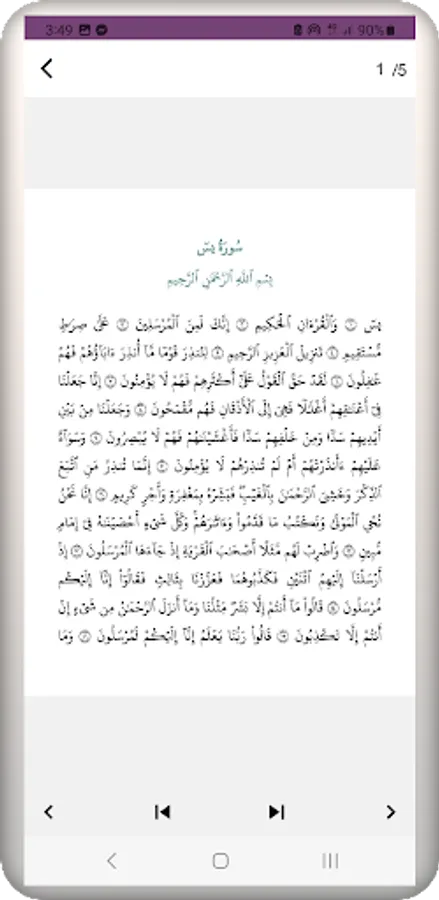 3:49
90%
1 /5
سُورَةُ يسٓ
بِسْمِ ٱللَّهِ ٱلرَّحْمَٰنِ ٱلرَّحِيمِ
يسٓ ۝ وَٱلْقُرْءَانِ ٱلْحَكِيمِ ۝ إِنَّكَ لَمِنَ ٱلْمُرْسَلِينَ ۝ عَلَىٰ صِرَٰطٍ
مُّسْتَقِيمٍ ۝ تَنزِيلَ ٱلْعَزِيزِ ٱلرَّحِيمِ ۝ لِتُنذِرَ قَوْمًا مَّآ أُنذِرَ ءَابَآؤُهُمْ فَهُمْ
غَٰفِلُونَ ۝ لَقَدْ حَقَّ ٱلْقَوْلُ عَلَىٰٓ أَكْثَرِهِمْ فَهُمْ لَا يُؤْمِنُونَ ۝ إِنَّا جَعَلْنَا
فِىٓ أَعْنَٰقِهِمْ أَغْلَٰلًا فَهِىَ إِلَى ٱلْأَذْقَانِ فَهُم مُّقْمَحُونَ ۝ وَجَعَلْنَا مِنۢ بَيْنِ
أَيْدِيهِمْ سَدًّا وَمِنْ خَلْفِهِمْ سَدًّا فَأَغْشَيْنَٰهُمْ فَهُمْ لَا يُبْصِرُونَ ۝ وَسَوَآءٌ
عَلَيْهِمْ ءَأَنذَرْتَهُمْ أَمْ لَمْ تُنذِرْهُمْ لَا يُؤْمِنُونَ ۝ إِنَّمَا تُنذِرُ مَنِ ٱتَّبَعَ
ٱلذِّكْرَ وَخَشِىَ ٱلرَّحْمَٰنَ بِٱلْغَيْبِ ۖ فَبَشِّرْهُ بِمَغْفِرَةٍ وَأَجْرٍ كَرِيمٍ ۝ إِنَّا نَحْنُ
نُحْىِ ٱلْمَوْتَىٰ وَنَكْتُبُ مَا قَدَّمُوا۟ وَءَاثَٰرَهُمْ ۚ وَكُلَّ شَىْءٍ أَحْصَيْنَٰهُ فِىٓ إِمَامٍ
مُّبِينٍ ۝ وَٱضْرِبْ لَهُم مَّثَلًا أَصْحَٰبَ ٱلْقَرْيَةِ إِذْ جَآءَهَا ٱلْمُرْسَلُونَ ۝ إِذْ
أَرْسَلْنَآ إِلَيْهِمُ ٱثْنَيْنِ فَكَذَّبُوهُمَا فَعَزَّزْنَا بِثَالِثٍ فَقَالُوٓا۟ إِنَّآ إِلَيْكُم
مُّرْسَلُونَ ۝ قَالُوا۟ مَآ أَنتُمْ إِلَّا بَشَرٌ مِّثْلُنَا وَمَآ أَنزَلَ ٱلرَّحْمَٰنُ مِن شَىْءٍ إِنْ
أَنتُمْ إِلَّا تَكْذِبُونَ ۝ قَالُوا۟ رَبُّنَا يَعْلَمُ إِنَّآ إِلَيْكُمْ لَمُرْسَلُونَ ۝ وَمَا